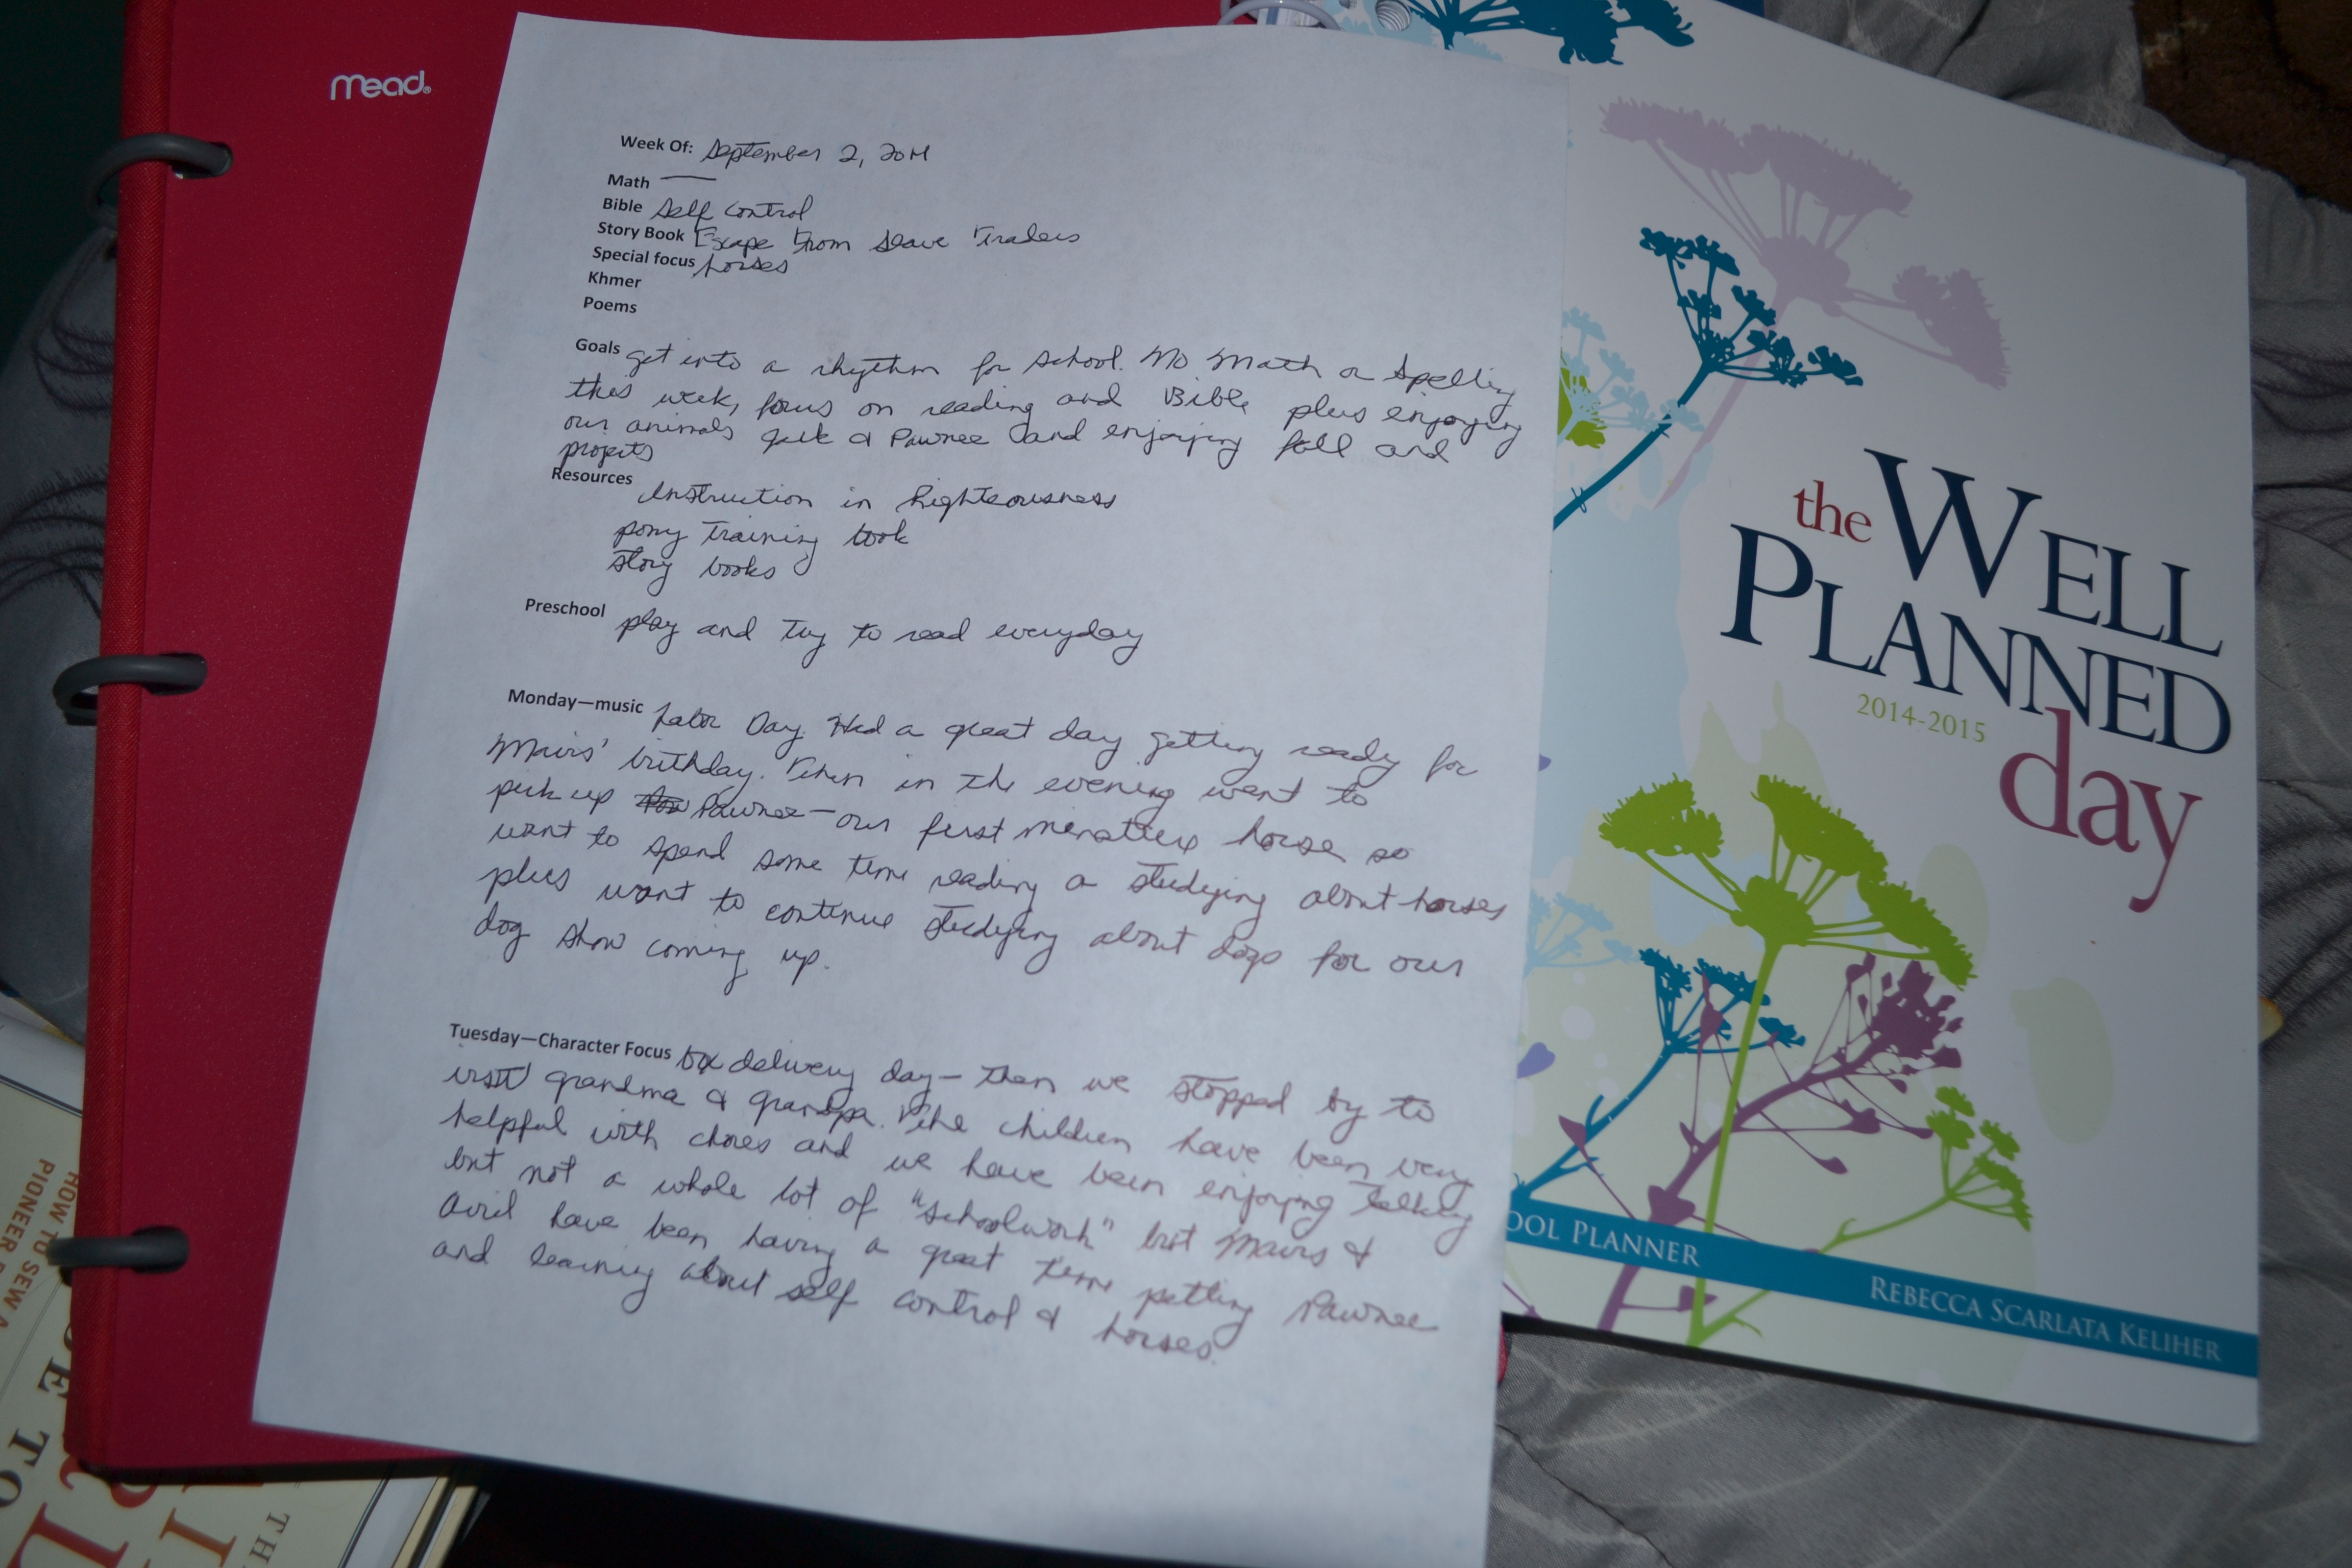 mead
Week Of: September 2, 2014
Math —
Bible Self Control
Story Book Escape From Slave Traders
Special focus horses
Khmer
Poems
Goals get into a rhythm for school. No Math or Spelling
this week, focus on reading and Bible plus enjoying
our animals & Pawnee and enjoying fall and
projects
Resources
Instruction in Righteousness
pony training book
story books
Preschool play and try to read everyday
Monday—music Labor Day. Had a great day getting ready for
birthday. Then in the evening went to
pick up Pawnee — our first horse so
want to spend some time reading a studying about horses
plus want to continue studying about dogs for our
dog show coming up.
Tuesday—Character Focus box delivery day — then we stopped by to
visit grandma & grandpa. The children have been very
helpful with chores and we have been enjoying talking
but not a whole lot of "schoolwork" but &
have been having a great time petting Pawnee
and learning about self control & horses.
the WELL
PLANNED
2014-2015
day
OOL PLANNER
REBECCA SCARLATA KELIHER
HOW TO SEW A
PIONEER